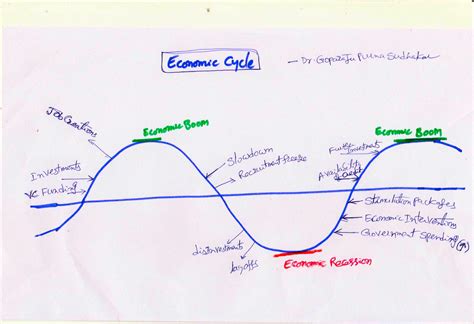 Economic Cycle
- Dr. Gopalraju Purna Sudhakar
Job Creations
Economic Boom
Investments
VC Funding
Slowdown
Recruitment freeze
disinvestment
layoffs
Economic Recession
Economic Boom
Further
Investments
Availability
Credit
Stimulation Packages
Economic Interventions
Government Spending (↑)